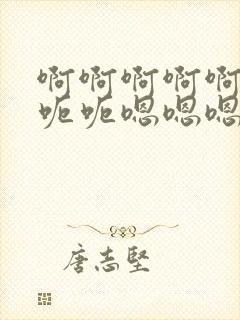 啊啊啊啊啊
呃呃嗯嗯嗯
唐志坚